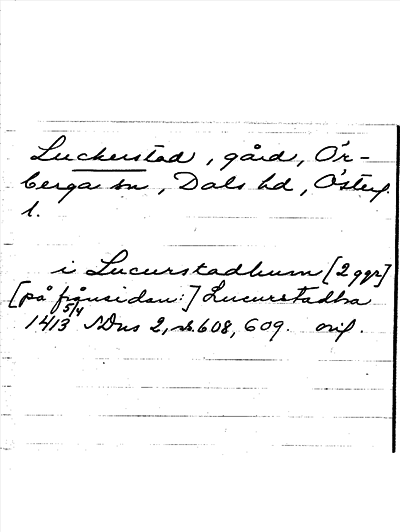 Luckerstad, gård, Ör-
berga sn, Dals hd, Österg.
l.
i Lucurstadhum [2 ggr]
[på frånsidan:] Lucurstadha
1413 5/4 SDns 2, s. 608, 609. orig.